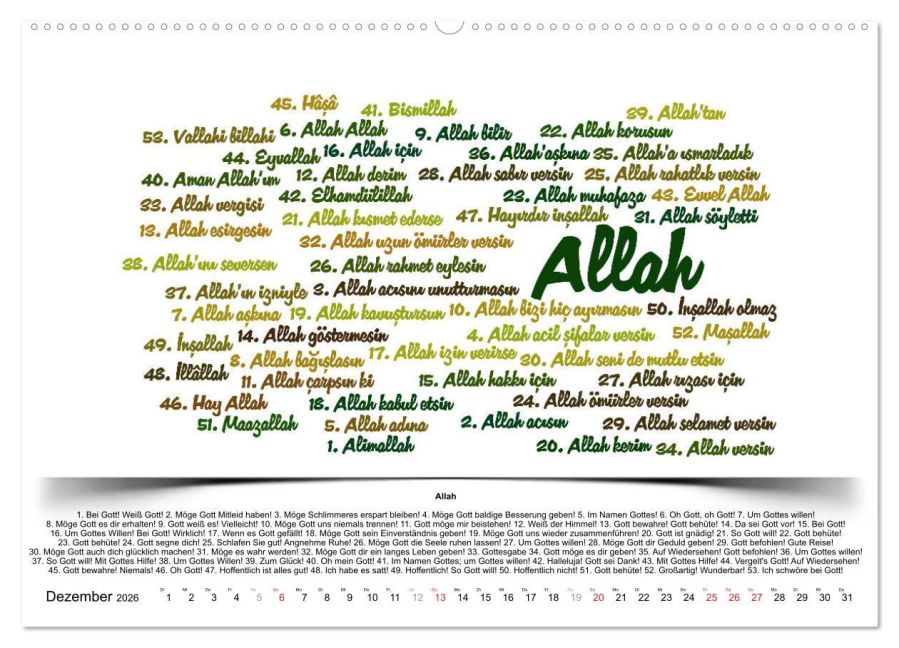 45. Hâşâ 41. Bismillah 39. Allah'tan
53. Vallahi billahi 6. Allah Allah 9. Allah bilir 22. Allah korusun
44. Eyvallah 16. Allah için 36. Allah'aşkına 35. Allah'a ısmarladık
40. Aman Allah'ım 12. Allah derim 28. Allah sabır versin 25. Allah rahatlık versin
33. Allah vergisi 42. Elhamdülillah 23. Allah muhafaza 43. Evvel Allah
13. Allah esirgesin 21. Allah kısmet ederse 47. Hayırdır inşallah 31. Allah söyletti
32. Allah uzun ömürler versin
38. Allah'ını seversen 26. Allah rahmet eylesin Allah
37. Allah'ın izniyle 3. Allah acısını unutturmasın
7. Allah aşkına 19. Allah kavuştursun 10. Allah bizi hiç ayırmasın 50. İnşallah olmaz
49. İnşallah 14. Allah göstermesin 4. Allah acil şifalar versin 52. Maşallah
8. Allah bağışlasın 17. Allah izin verirse 30. Allah seni de mutlu etsin
48. İllâllah 11. Allah çarpsın ki 15. Allah hakkı için 27. Allah rızası için
46. Hay Allah 18. Allah kabul etsin 24. Allah ömürler versin
51. Maazallah 5. Allah adına 2. Allah acısın 29. Allah selamet versin
1. Alimallah 20. Allah kerim 34. Allah versin
Allah
1. Bei Gott! Weiß Gott! 2. Möge Gott Mitleid haben! 3. Möge Schlimmeres erspart bleiben! 4. Möge Gott baldige Besserung geben! 5. Im Namen Gottes! 6. Oh Gott, oh Gott! 7. Um Gottes willen!
8. Möge Gott es dir erhalten! 9. Gott weiß es! Vielleicht! 10. Möge Gott uns niemals trennen! 11. Gott möge mir beistehen! 12. Weiß der Himmel! 13. Gott bewahre! Gott behüte! 14. Da sei Gott vor! 15. Bei Gott!
16. Um Gottes Willen! Bei Gott! Wirklich! 17. Wenn es Gott gefällt! 18. Möge Gott sein Einverständnis geben! 19. Möge Gott uns wieder zusammenführen! 20. Gott ist gnädig! 21. So Gott will! 22. Gott behüte!
23. Gott behüte! 24. Gott segne dich! 25. Schlafen Sie gut! Angnehme Ruhe! 26. Möge Gott die Seele ruhen lassen! 27. Um Gottes willen! 28. Möge Gott dir Geduld geben! 29. Gott befohlen! Gute Reise!
30. Möge Gott auch dich glücklich machen! 31. Möge es wahr werden! 32. Möge Gott dir ein langes Leben geben! 33. Gottesgabe 34. Gott möge es dir geben! 35. Auf Wiedersehen! Gott befohlen! 36. Um Gottes willen!
37. So Gott will! Mit Gottes Hilfe! 38. Um Gottes Willen! 39. Zum Glück! 40. Oh mein Gott! 41. Im Namen Gottes; um Gottes willen! 42. Halleluja! Gott sei Dank! 43. Mit Gottes Hilfe! 44. Vergelt's Gott! Auf Wiedersehen!
45. Gott bewahre! Niemals! 46. Oh Gott! 47. Hoffentlich ist alles gut! 48. Ich habe es satt! 49. Hoffentlich! So Gott will! 50. Hoffentlich nicht! 51. Gott behüte! 52. Großartig! Wunderbar! 53. Ich schwöre bei Gott!
Di Mi Do Fr Sa So Mo Di Mi Do Fr Sa So Mo Di Mi Do Fr Sa So Mo Di Mi Do Fr Sa So Mo Di Mi Do
Dezember 2026 1 2 3 4 5 6 7 8 9 10 11 12 13 14 15 16 17 18 19 20 21 22 23 24 25 26 27 28 29 30 31